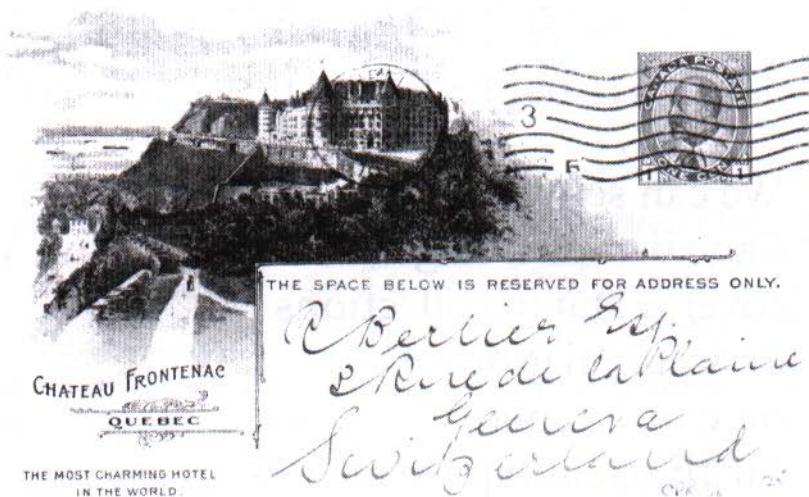 CANADA POSTAGE
1 ONE CENT 1
3
THE SPACE BELOW IS RESERVED FOR ADDRESS ONLY.
Berlier Esq.
2 Rue de la Plaine
Geneva
Switzerland
CHATEAU FRONTENAC
QUEBEC
THE MOST CHARMING HOTEL
IN THE WORLD.